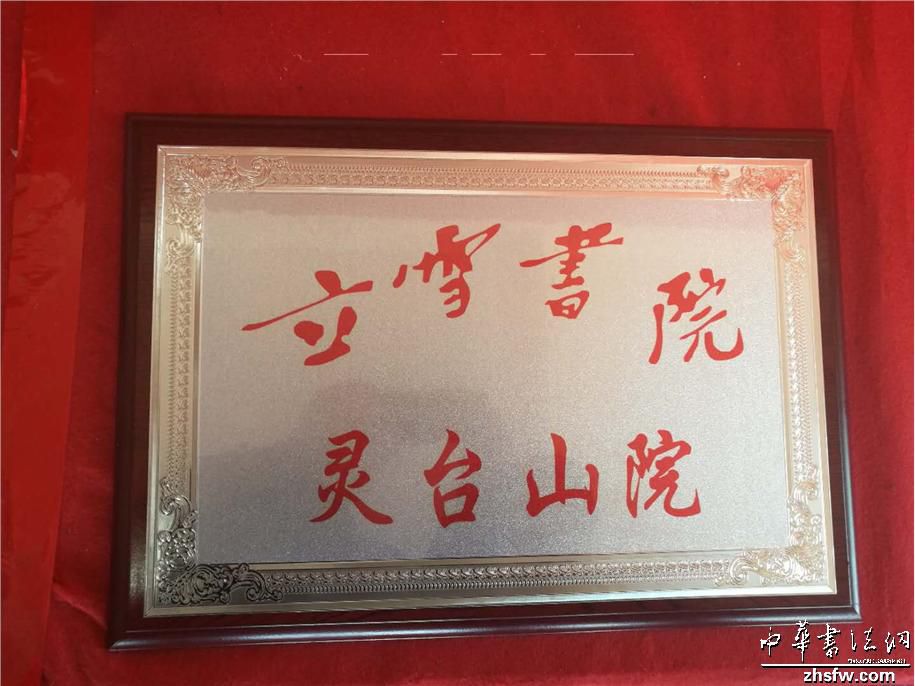 立雪書院
灵台山院
中華書法網
zhsfw.com